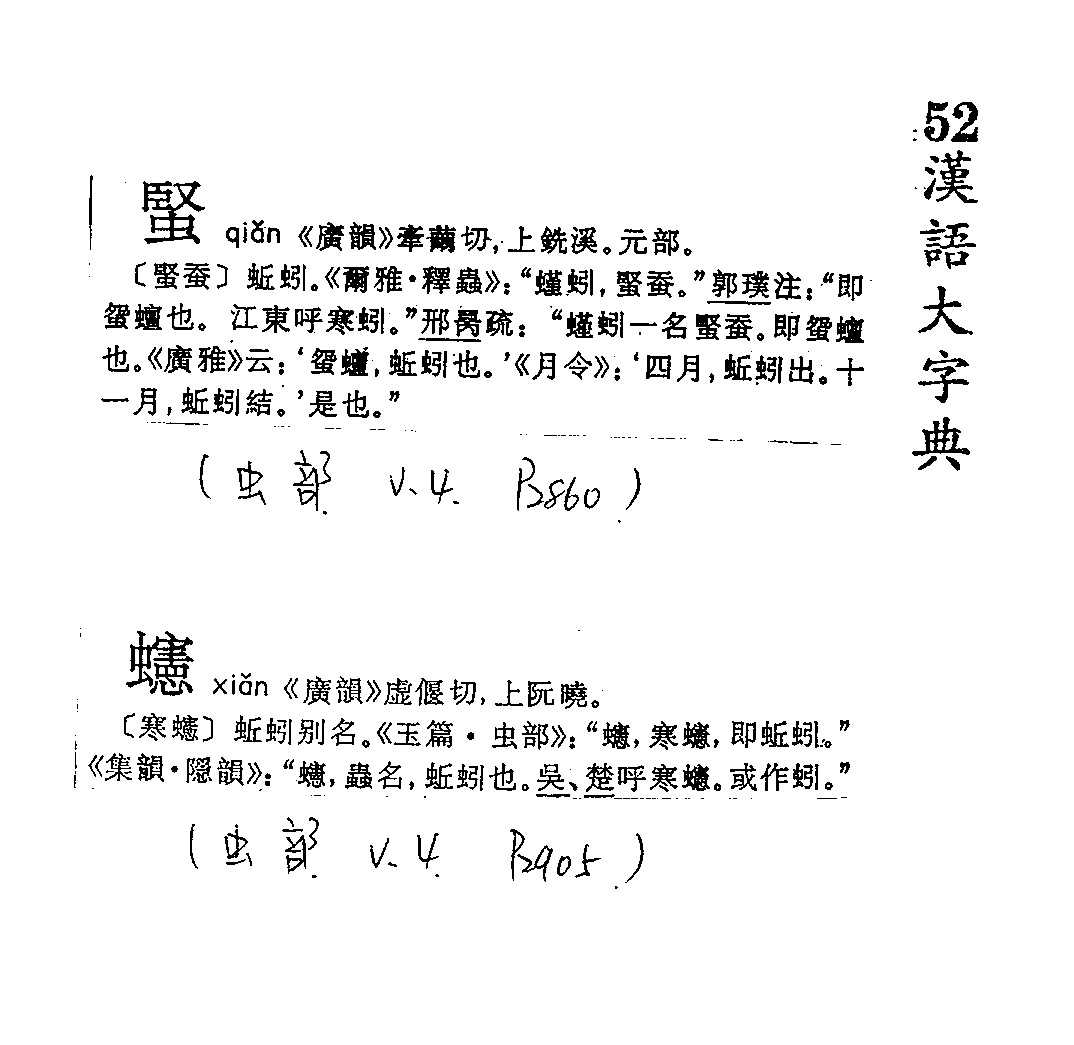 52
漢語大字典
蜸 qiǎn《廣韻》牽繭切,上銑溪。元部。
〔蜸蚕〕蚯蚓。《爾雅·釋蟲》:“螼蚓,蜸蚕。”郭璞注:“即
䖤蟺也。江東呼寒蚓。”邢昺疏:“螼蚓一名蜸蚕。即䖤蟺
也。《廣雅》云:‘䖤蟺,蚯蚓也。’《月令》:‘四月,蚯蚓出。十
一月,蚯蚓結。’是也。”
(虫部 v.4. P2860)
䘆 xiǎn《廣韻》虛偃切,上阮曉。
〔寒䘆〕蚯蚓别名。《玉篇·虫部》:“䘆,寒䘆,即蚯蚓。”
《集韻·隱韻》:“䘆,蟲名,蚯蚓也。吳、楚呼寒䘆。或作蚓。”
(虫部 v.4 P2905)